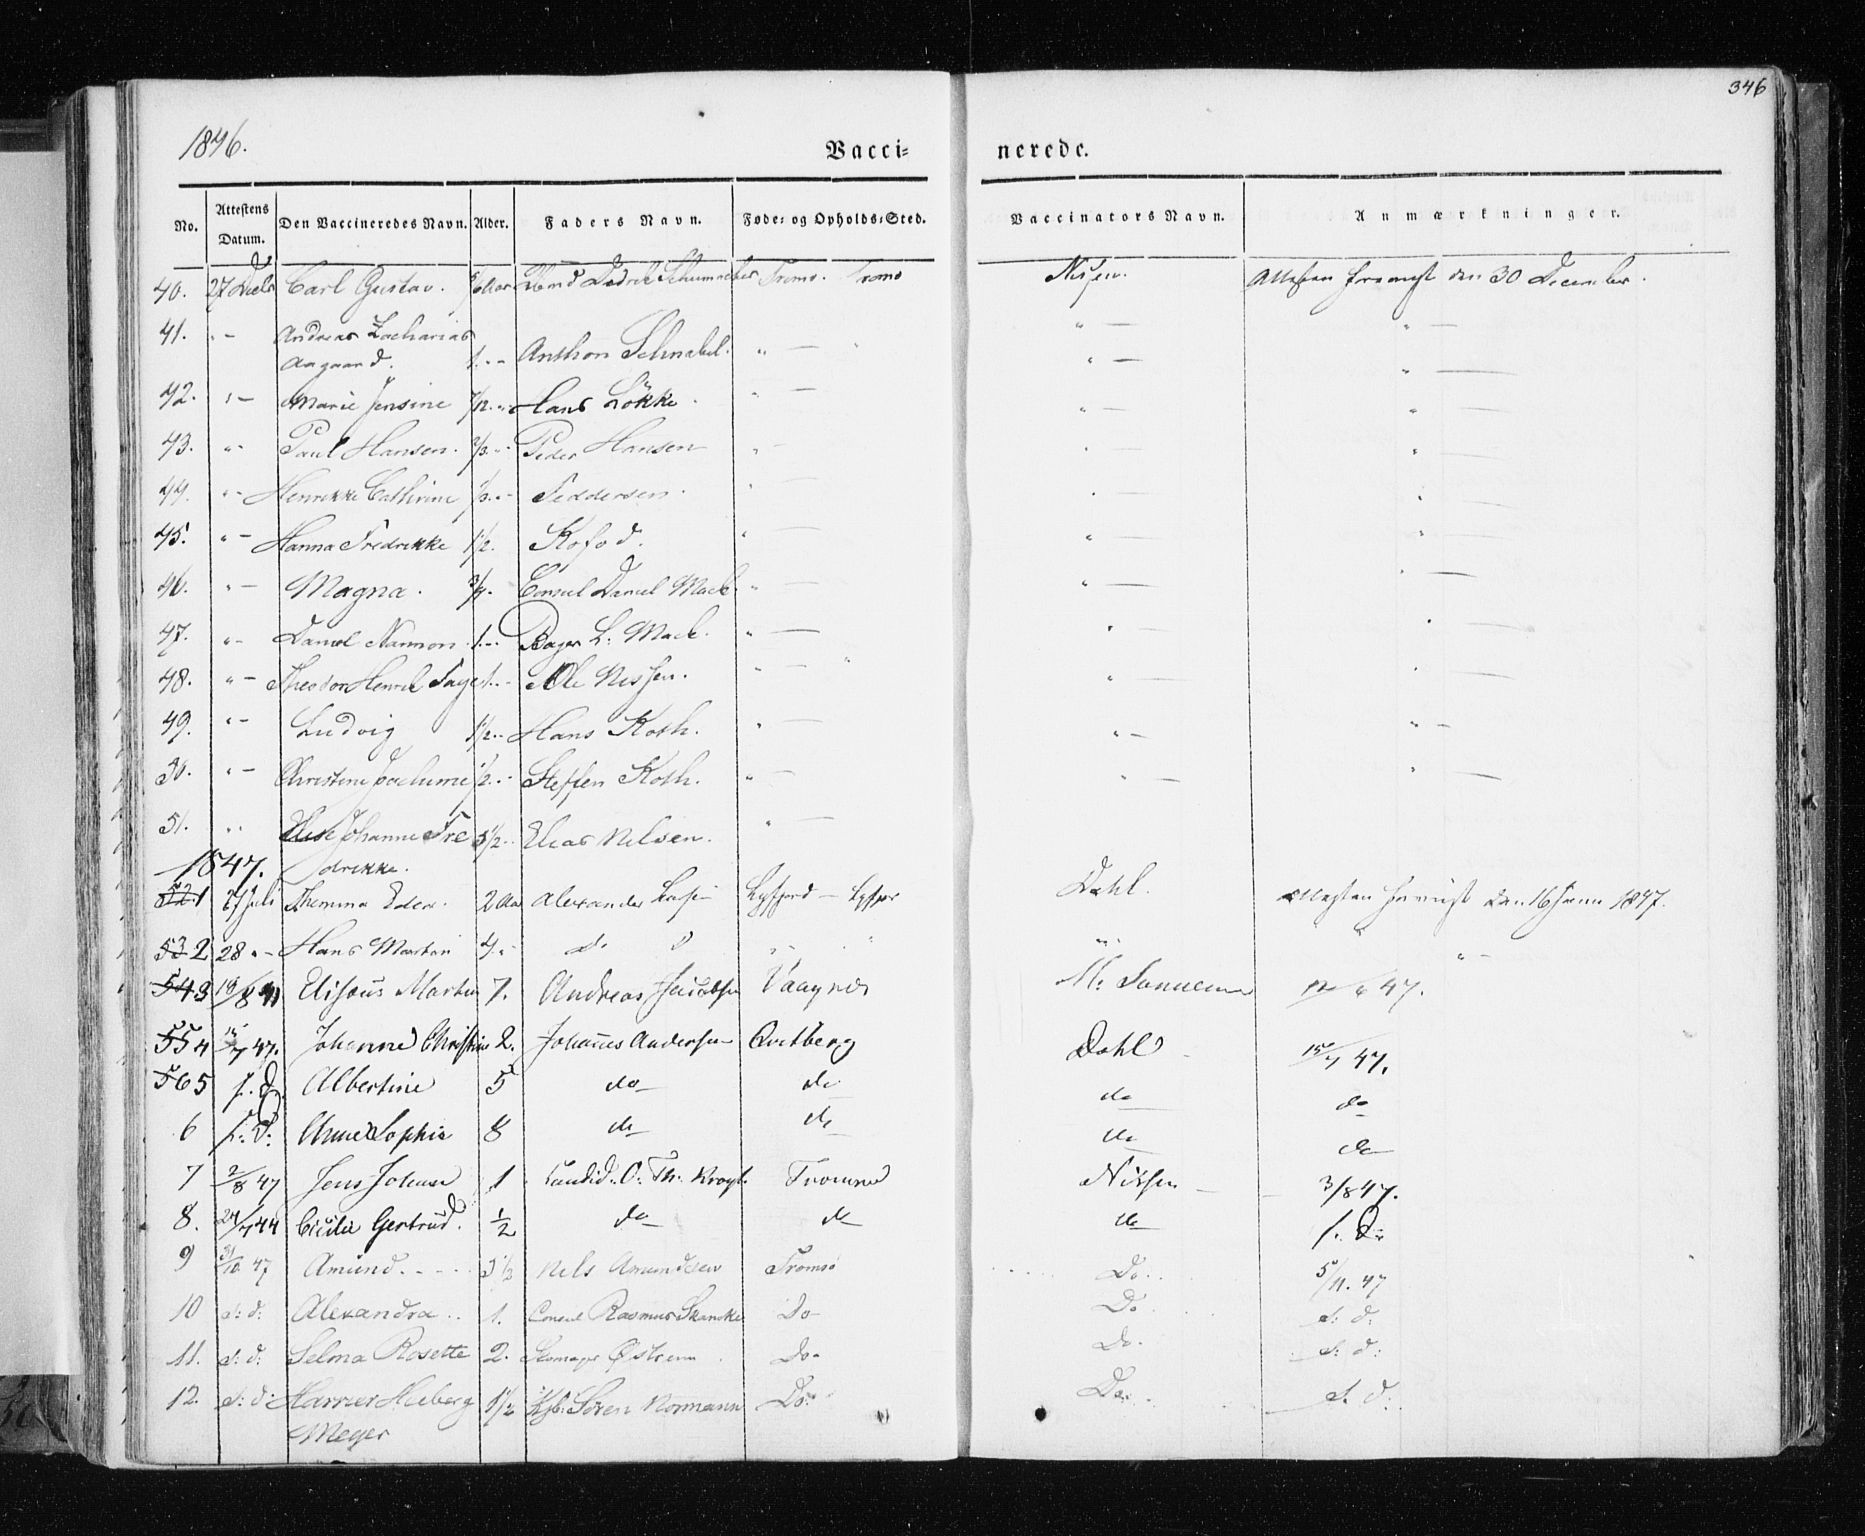 346
1846.
Vacci=
nerede.
No. Attestens Datum. Den Vaccineredes Navn. Alder. Faders Navn. Føde= og Opholds=Sted. Vaccinators Navn. Anmærkninger.
40. 27 Carl Gustav. Tromsø. Tromsø Nissen. Attesten den 30 December.
41. " – Andreas Zacharias
Aagaard. 1. " – Anthon Schnabel. " – "
42. " – Marie Jensine 7/12. " Hans Løkke. " –
43. " – Paul Hansen. 2/3. " Peder Hansen " –
44. " – Henrikke Cathrine Feddersen. " –
45. " – Hanna Fredrikke 1½. Kofod. "
46. " – Magna. 3/4. Consul Daniel Mack. " –
47. " – Daniel 1. " – Bager L: Mack. " –
48. " – Theodor Henrik 1. " – Ole Nissen. " – "
49. " – Ludvig 1½. " Hans Koth. " –
50. " – Christine ½. " – Steffen Koth. " –
51. " Johanne Fre 5½. " Elias Nilsen. " –
1847. drikke.
52. 1 27 Juli 2 Aar Alexander Dahl. Attesten den 16 1847.
53 2 28 " – Hans Martin 4. " do " "
54 3 Elisæus Martin 7. Andreas Vaagnes 47.
55 4 15/7 47. Johanne Christine 2. Johannes Andersen Qvitberg Dahl 15/7 47.
56 5 s. d. Albertine 5 do do do do
6 s: d: Anne Sophie 8 do do do do
7 2/8 47 Jens Johan 1 Candid. O: Th: Krogh Tromsø Nissen – 3/8 47.
8. 24/7 44 Cicilie Gertrud. ½ do do do s. d:
9 31/10 47 Amund. - - - 3½ Nils Amundsen Tromsø Do. 5/11. 47
10 s: d: Alexandra .. 1. Consul Rasmus Skancke Do Do s: d:
11. s: d: Selma Rosette 2. Skomager Østrem Do. Do. s: d:
12. s: d: Hieberg 1½ Søren Normann Do: Do. s: d:
Meyer